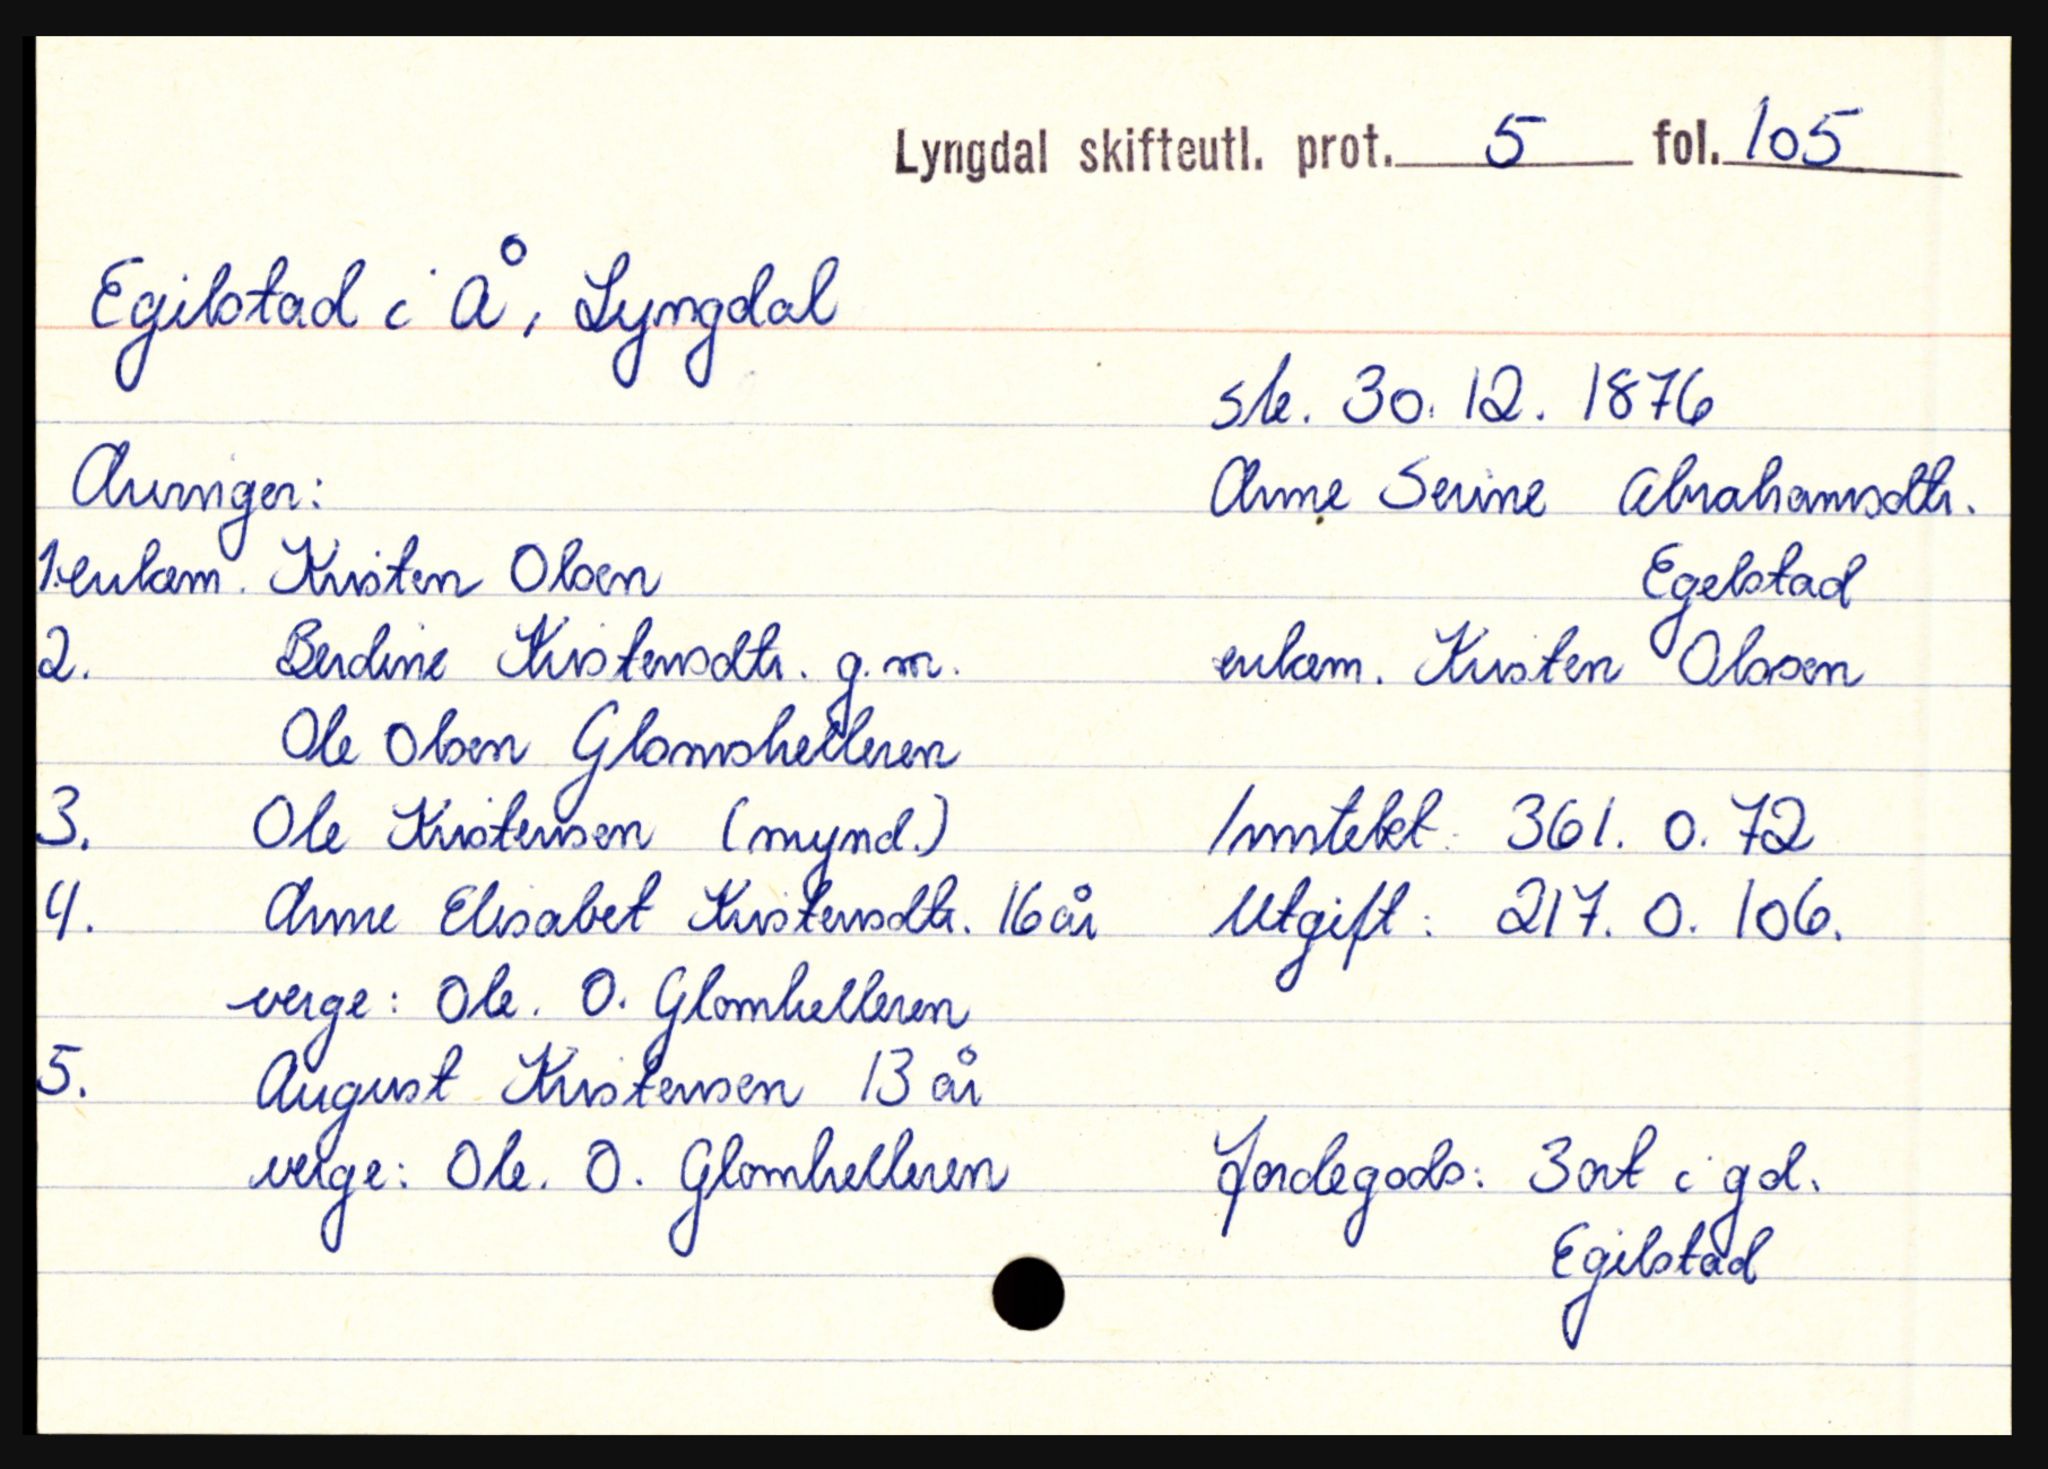 Lyngdal skifteutl. prot. 5 fol. 105
Egilstad i Å, Lyngdal
sk. 30. 12. 1876
Anne Serine Abrahamsdtr.
Egelstad
enkem. Kristen Olssen
Arvinger:
1. enkem. Kristen Olsen
2. Berdine Kristensdtr. g.m.
Ole Olsen Glomshelleren
3. Ole Kristensen (mynd.)
4. Anne Elisabet Kristensdtr. 16 år
verge: Ole. O. Glomhelleren
5. August Kristensen 13 år
verge: Ole. O. Glomhelleren
Inntekt: 361. 0. 72
Utgift: 217. 0. 106.
Jordegods: 3 ort i gd.
Egilstad